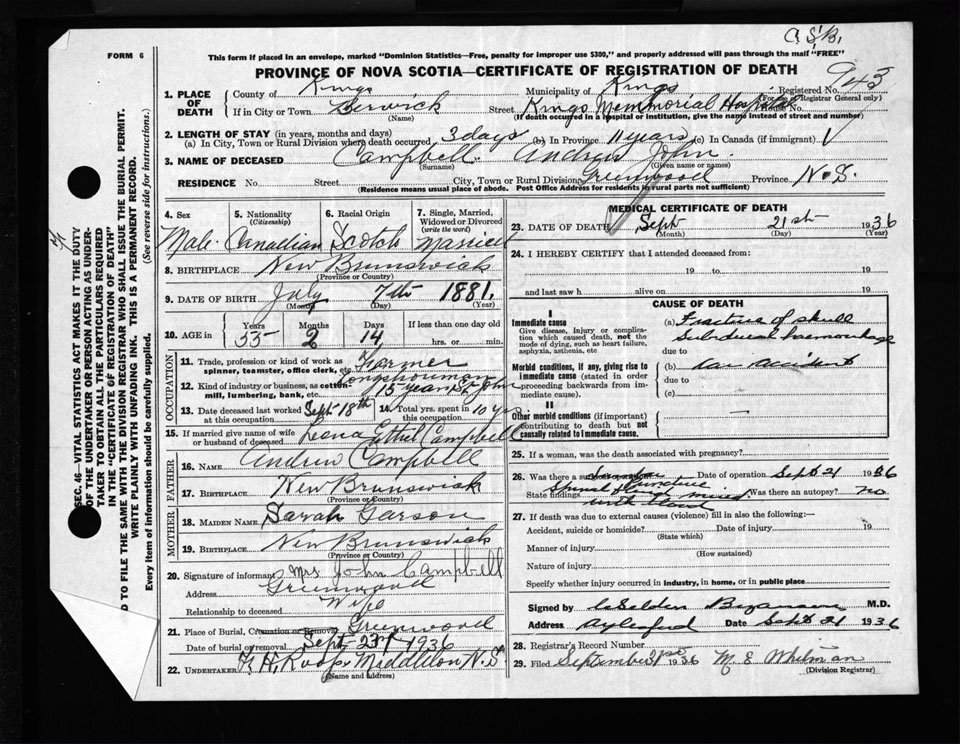 C.S.B.
FORM 6
This form if placed in an envelope, marked "Dominion Statistics—Free, penalty for improper use $300," and properly addressed will pass through the mail "FREE"
PROVINCE OF NOVA SCOTIA—CERTIFICATE OF REGISTRATION OF DEATH
1. PLACE OF DEATH
County of Kings Municipality of Kings Registered No. 943
(For Registrar General only)
If in City or Town Berwick Street Kings Memmorial Hospital House No.
(Name) (If death occurred in a hospital or institution, give the name instead of street and number)
2. LENGTH OF STAY (in years, months and days)
(a) In City, Town or Rural Division where death occurred 3 days (b) In Province 11 years (c) In Canada (if immigrant)
3. NAME OF DECEASED Campbell Andrew John
(Surname) (Given name or names)
RESIDENCE No. Street City, Town or Rural Division Greenwood Province N.S.
(Residence means usual place of abode. Post Office Address for residents in rural parts not sufficient)
4. Sex Male
5. Nationality (Citizenship) Canadian
6. Racial Origin Scotch
7. Single, Married, Widowed or Divorced (write the word) Married
8. BIRTHPLACE New Brunswick
(Province or Country)
9. DATE OF BIRTH July 7th 1881
(Month) (Day) (Year)
10. AGE in Years 55 Months 2 Days 14 If less than one day old
hrs. or min.
OCCUPATION
11. Trade, profession or kind of work as spinner, teamster, office clerk, etc. Farmer
12. Kind of industry or business, as cotton-mill, lumbering, bank, etc. Longshoreman 15 years St John
13. Date deceased last worked at this occupation Sept 18th
14. Total yrs. spent in this occupation 10 yrs
15. If married give name of wife or husband of deceased Leena Ethel Campbell
FATHER
16. NAME Andrew Campbell
17. BIRTHPLACE New Brunswick
(Province or Country)
MOTHER
18. MAIDEN NAME Sarah Garson
19. BIRTHPLACE New Brunswick
(Province or Country)
20. Signature of informant Mrs John Campbell
Address Greenwood
Relationship to deceased Wife
21. Place of Burial, Cremation or Removal Greenwood
Date of burial or removal Sept 23 1936
22. UNDERTAKER Middleton N.S
(Name and Address)
MEDICAL CERTIFICATE OF DEATH
23. DATE OF DEATH Sept 21st 1936
(Month) (Day) (Year)
24. I HEREBY CERTIFY that I attended deceased from:
19 to 19
and last saw h alive on 19
CAUSE OF DEATH
I
Immediate cause
Give disease, injury or complication which caused death, not the mode of dying, such as heart failure, asphyxia, asthenia, etc
(a) Fracture of skull
Subdural haemorrhage
due to
Morbid conditions, if any, giving rise to immediate cause (stated in order proceeding backwards from immediate cause).
(b) Car accident
due to
(c)
II
Other morbid conditions (if important) contributing to death but not causally related to immediate cause.
25. If a woman, was the death associated with pregnancy?
26. Was there a surgical operation? Date of operation Sept 21 1936
State findings Spinal fluid mixed with blood Was there an autopsy? no
27. If death was due to external causes (violence) fill in also the following:—
Accident, suicide or homicide? Date of injury 19
(State which)
Manner of injury
(How sustained)
Nature of injury
Specify whether injury occurred in industry, in home, or in public place
Signed by M.D.
Address Aylesford Date Sept 21 1936
28. Registrar's Record Number
29. Filed September 21st 1936 M. E. Whitman
(Division Registrar)
SEC. 46—VITAL STATISTICS ACT MAKES IT THE DUTY
OF THE UNDERTAKER OR PERSON ACTING AS UNDER-
TAKER TO OBTAIN ALL THE PARTICULARS REQUIRED
IN THE "CERTIFICATE OF REGISTRATION OF DEATH"
D TO FILE THE SAME WITH THE DIVISION REGISTRAR WHO SHALL ISSUE THE BURIAL PERMIT.
WRITE PLAINLY WITH UNFADING INK. THIS IS A PERMANENT RECORD.
Every item of information should be carefully supplied. (See reverse side for instructions.)